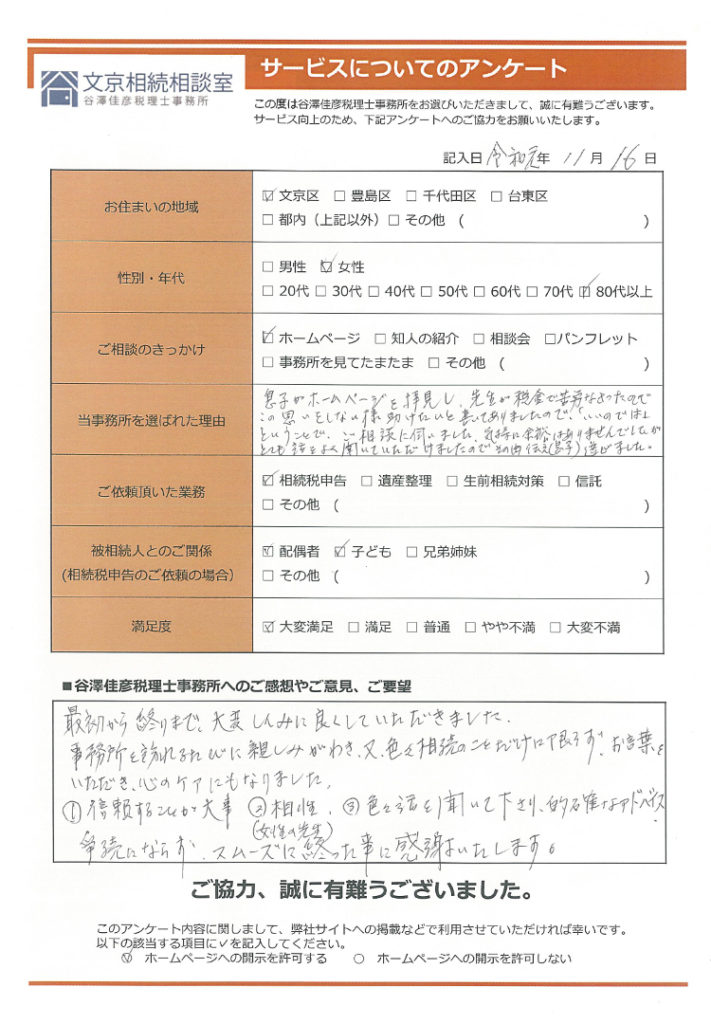 文京相続相談室
谷澤佳彦税理士事務所
サービスについてのアンケート
この度は谷澤佳彦税理士事務所をお選びいただきまして、誠に有難うございます。
サービス向上のため、下記アンケートへのご協力をお願いいたします。
記入日 令和元年 11月 16日
お住まいの地域
☑ 文京区 □ 豊島区 □ 千代田区 □ 台東区
□ 都内（上記以外）□ その他 （ ）
性別・年代
□ 男性 ☑ 女性
□ 20代 □ 30代 □ 40代 □ 50代 □ 60代 □ 70代 ☑ 80代以上
ご相談のきっかけ
☑ ホームページ □ 知人の紹介 □ 相談会 □パンフレット
□ 事務所を見てたまたま □ その他 （ ）
当事務所を選ばれた理由
息子がホームページを拝見し、先生が税金で苦労なさったので
この思いをしない様助けたいと書いてありましたので、いいのでは、
ということで、ご相談に伺いました。気持に余裕はありませんでしたが
とても話をよく聞いていただけましたので
ご依頼頂いた業務
☑ 相続税申告 □ 遺産整理 □ 生前相続対策 □ 信託
□ その他 （ ）
被相続人とのご関係
(相続税申告のご依頼の場合)
☑ 配偶者 ☑ 子ども □ 兄弟姉妹
□ その他 （ ）
満足度
☑ 大変満足 □ 満足 □ 普通 □ やや不満 □ 大変不満
■谷澤佳彦税理士事務所へのご感想やご意見、ご要望
最初から終りまで、大変しんみに良くしていただきました。
事務所を訪れるたびに親しみがわき、又、色々相続のことだけに限らず、お言葉を
いただき、心のケアにもなりました。
① 信頼することが大事 ② 相性、③ 色々話を聞いて下さり、的確なアドバイス
(女性の先生)
争続にならず、スムーズに終った事に感謝いたします。
ご協力、誠に有難うございました。
このアンケート内容に関しまして、弊社サイトへの掲載などで利用させていただければ幸いです。
以下の該当する項目に✓を記入してください。
☑ ホームページへの開示を許可する ○ ホームページへの開示を許可しない